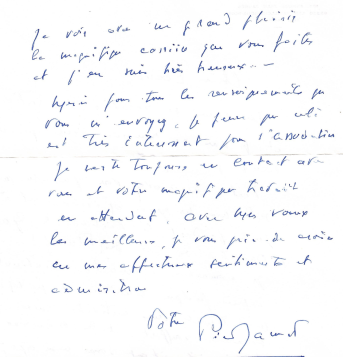 Je vois avec un grand plaisir
la magnifique carrière que vous faites
et j'en suis très heureux. —
pour tous les renseignements que
vous m'envoyez. Je pense que cela
est très intéressant pour l'association
Je reste toujours en contact avec
vous et votre magnifique travail
en attendant, avec mes vœux
les meilleurs, je vous prie de croire
en mes affectueux sentiments et
admiration
Votre